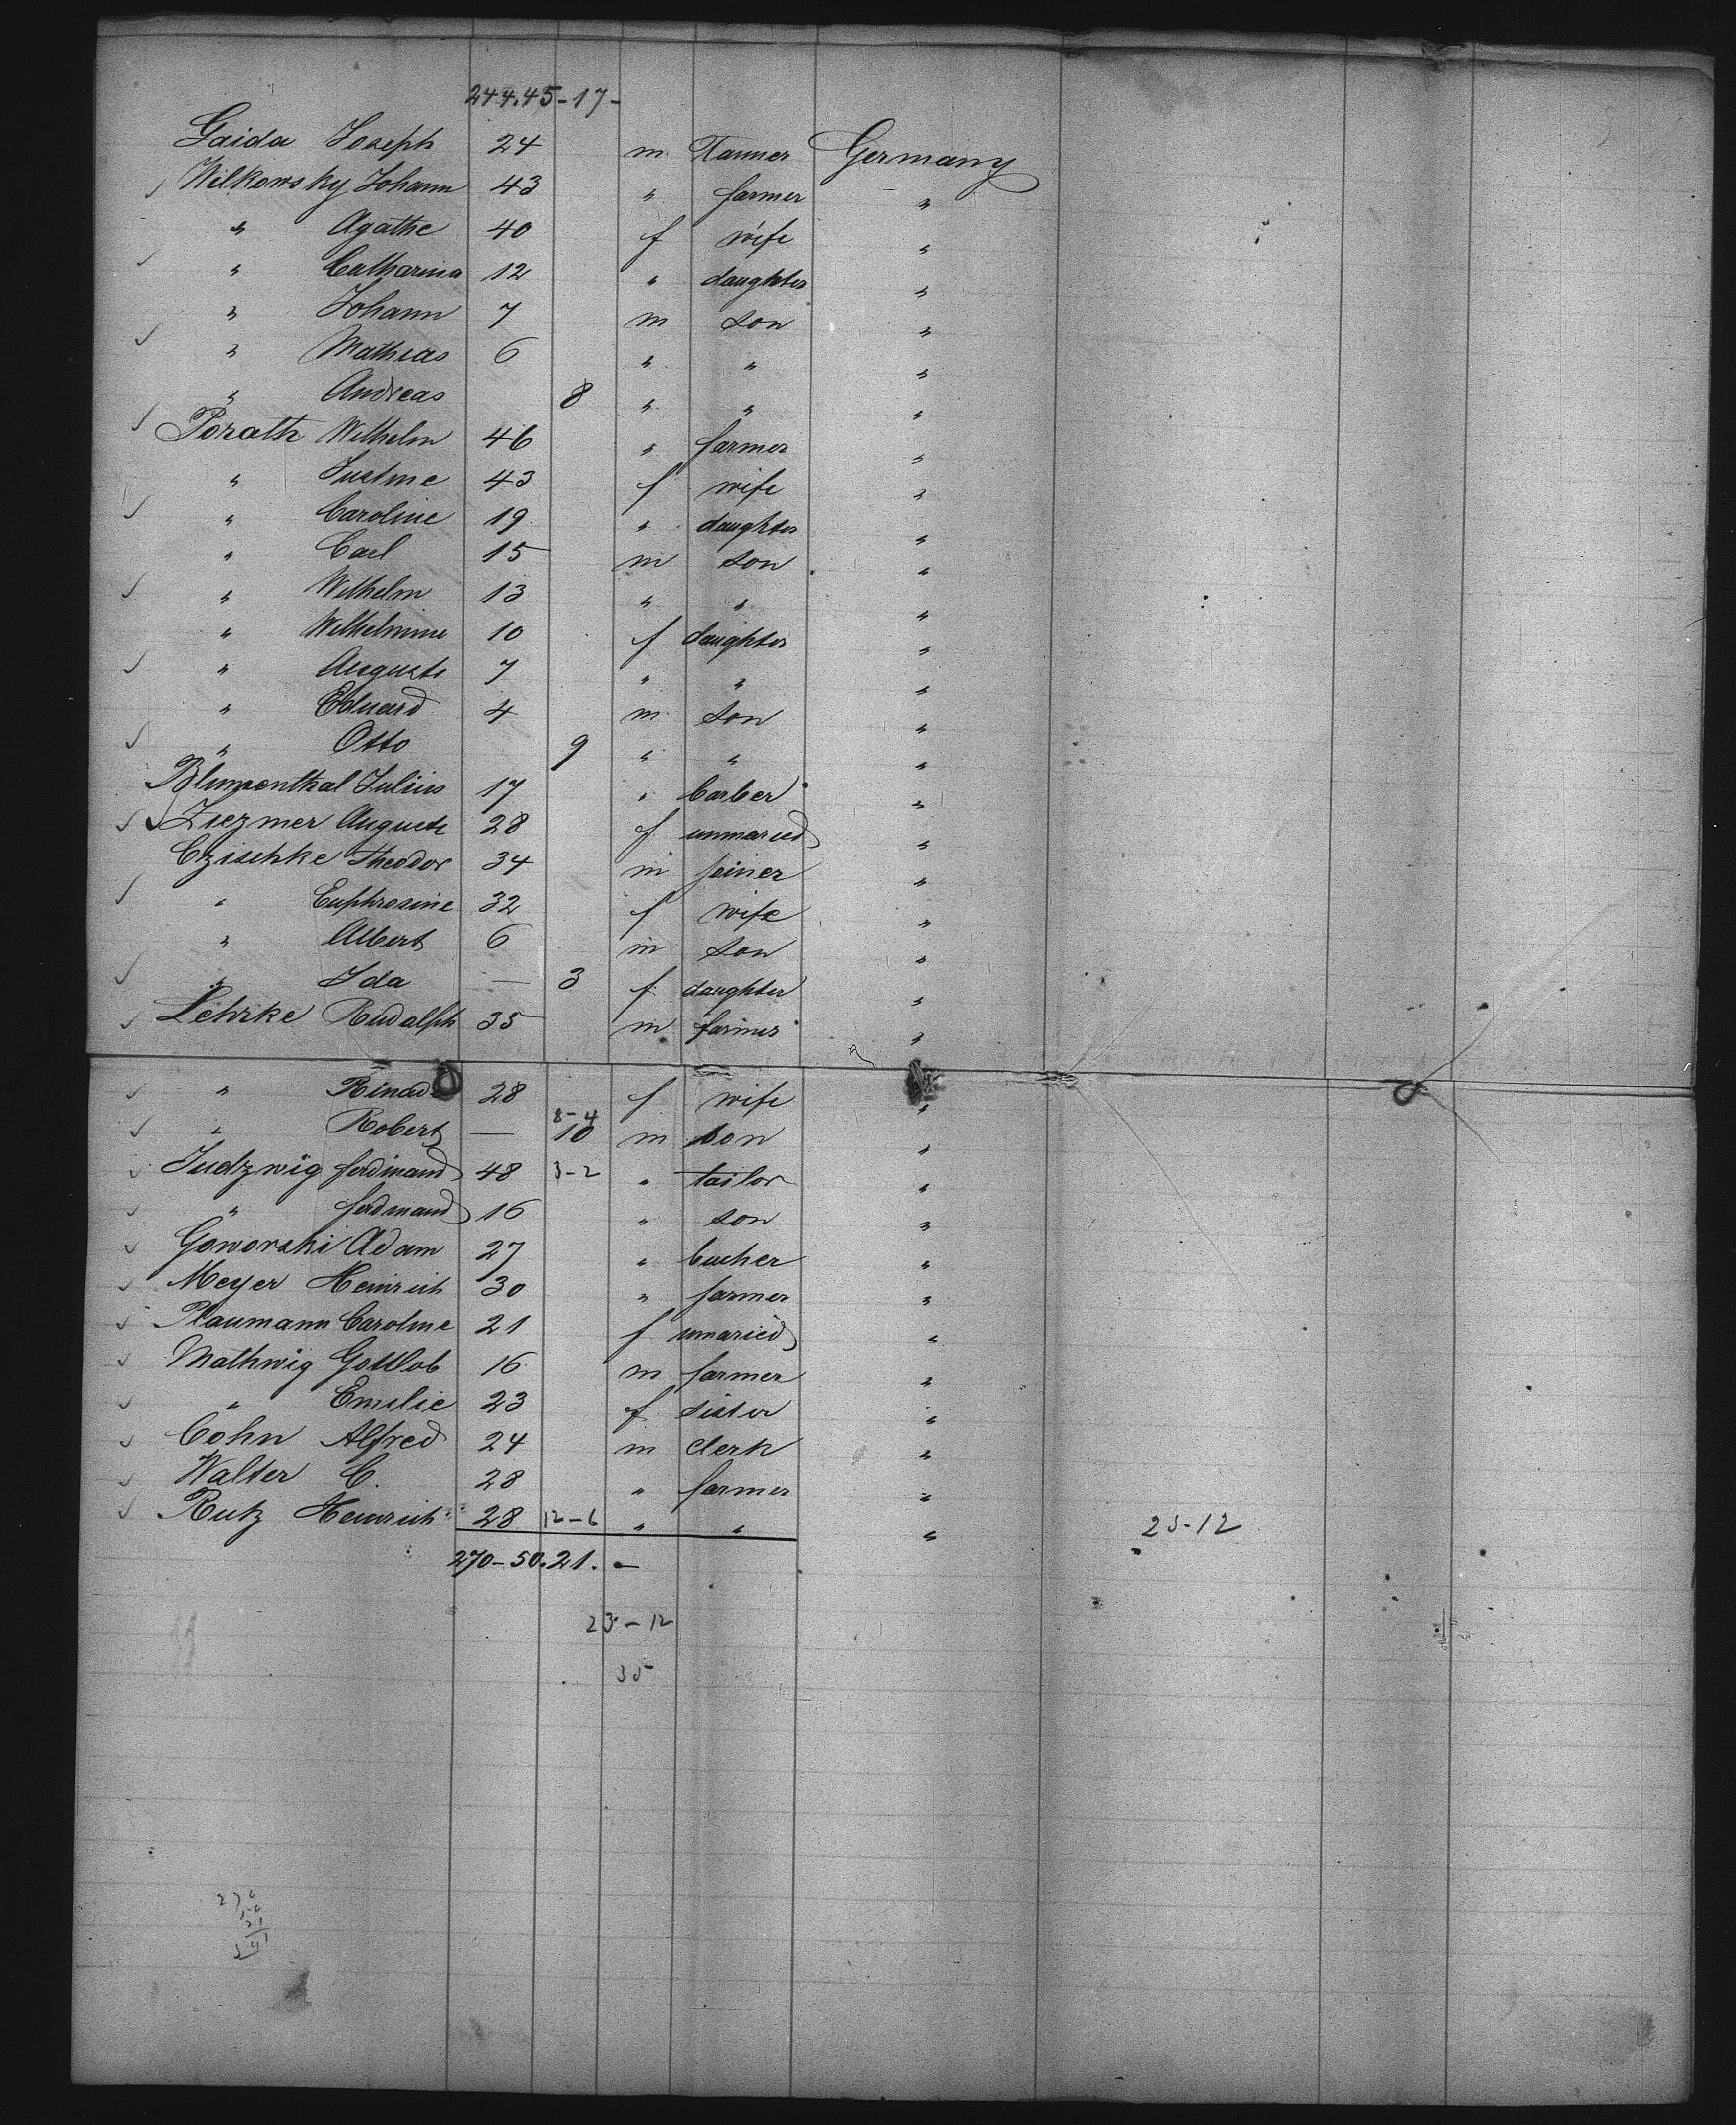 244.45-17-
Gaida Joseph 24 m. Tanner Germany
Wilkowsky Johann 43 " farmer "
" Agathe 40 f wife "
" Catharina 12 " daughter "
" Johann 7 m son "
" Mathias 6 " " "
" Andreas 8 " " "
Porath Wilhelm 46 " farmer "
" Justine 43 f wife "
" Caroline 19 " daughter "
" Carl 15 m son "
" Wilhelm 13 " " "
" Wilhelmine 10 f daughter "
" Auguste 7 " " "
" Eduard 4 m son "
" Otto 9 " " "
Blumenthal Julius 17 " barber "
Ziezmer Auguste 28 f unmaried "
Czischke Theodor 34 m joiner "
" Euphrosine 32 f wife "
" Albert 6 m son "
" Ida — 3 f daughter "
Lehrke Rudolph 35 m farmer "
" 28 f wife "
8-4
" Robert — 10 m son "
Judzwig ferdinand 48 3-2 " tailor "
" ferdinand 16 " son "
Goworski Adam 27 " bucher "
Meyer Heinrich 30 " farmer "
Plaumann Caroline 21 f unaried "
Mathwig Gottlob 16 m farmer "
" Emilie 23 f sister "
Cohn Alfred 24 m clerk "
Walter C. 28 " farmer "
Rutz Heinrich 28 12-6 " " " 23-12
270-50.21.-
23-12
35
270
50
21
341